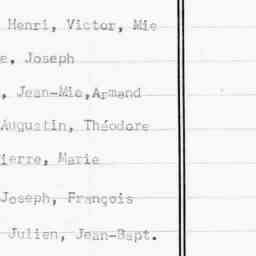 Henri, Victor, Mie
e, Joseph
, Jean-Mie,Armand
Augustin, Théodore
ierre, Marie
Joseph, François
Julien, Jean-Bapt.